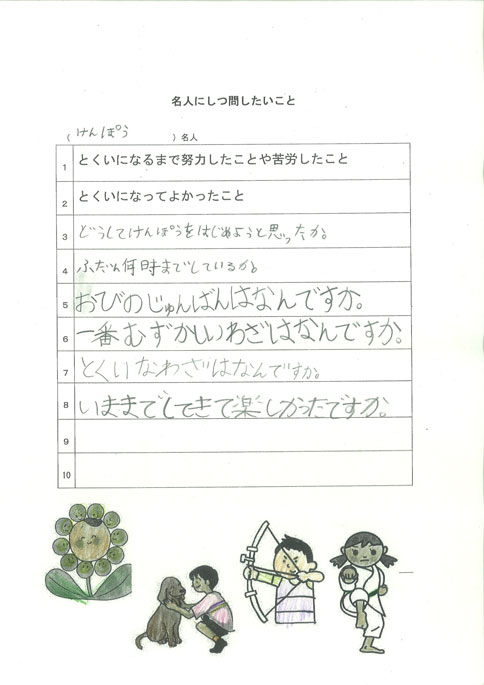 名人にしつ問したいこと
(けんぽう)名人
1 とくいになるまで努力したことや苦労したこと
2 とくいになってよかったこと
3 どうしてけんぽうをはじめようと思ったか。
4 ふだん何時までしているか。
5 おびのじゅんばんはなんですか。
6 一番むずかしいわざはなんですか。
7 とくいなわざはなんですか。
8 いままでしてきて楽しかったですか。
9
10